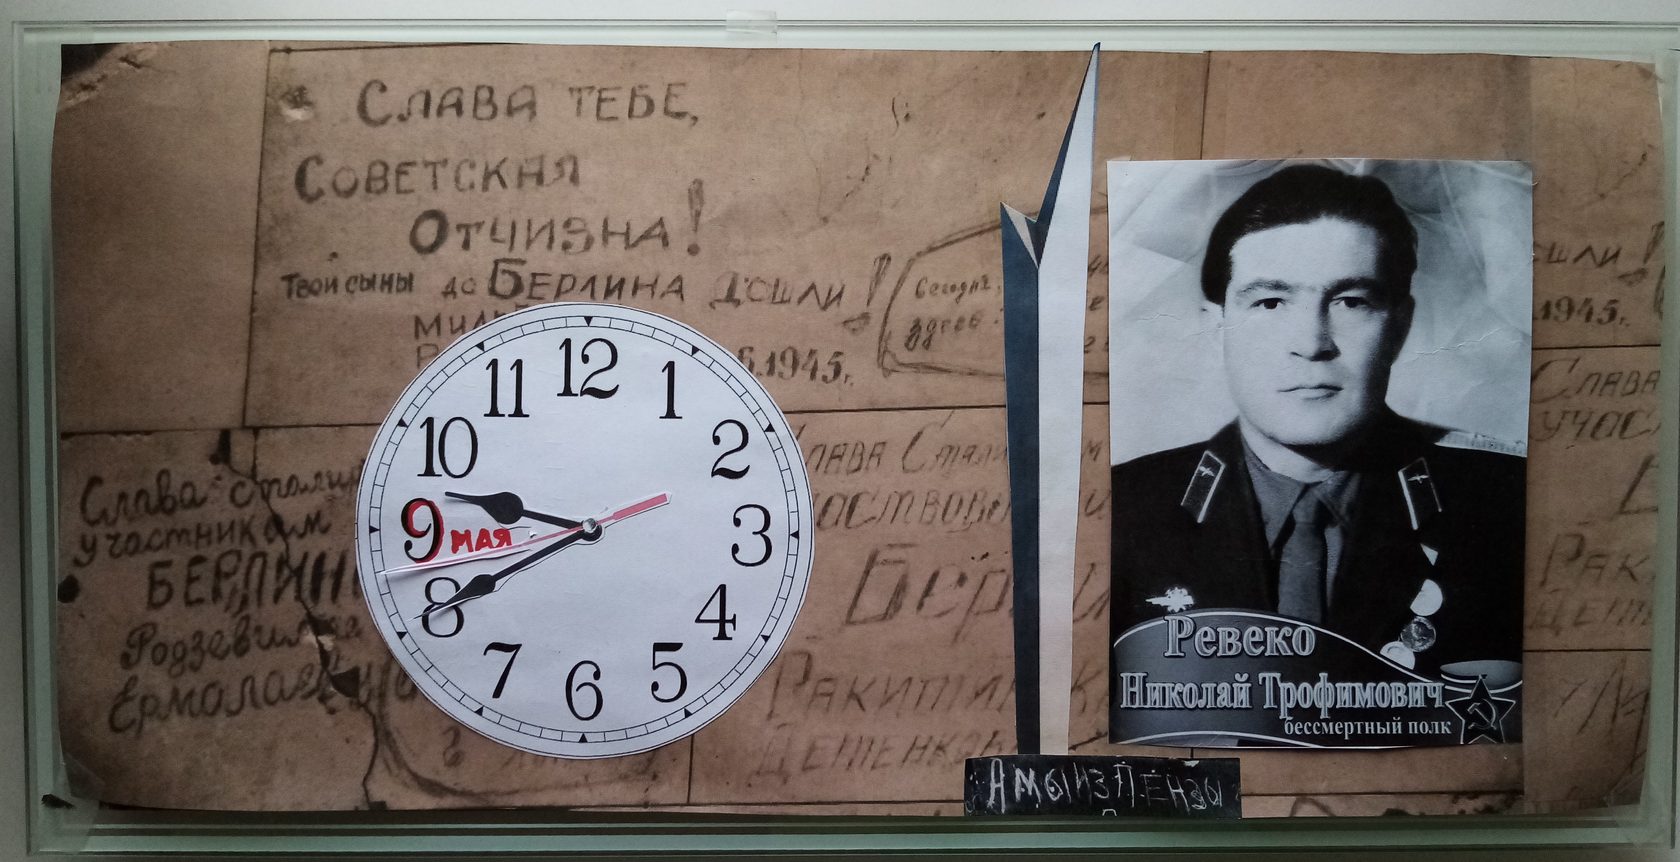 Слава тебе,
Советская
Отчизна!
Твои сыны до Берлина дошли!
1945г.
Сегодня
здесь
ошли!
1945г.
Слава
участ
Слава Сталин
участникам
Берлин
Родзевил
Ермолаев
лава Стали м
аствова
Бер
Ракитян
Детенко
Рак
Дете
12
1
2
3
4
5
6
7
8
9 мая
10
11
Ревеко
Николай Трофимович
бессмертный полк
А мы из Пензы